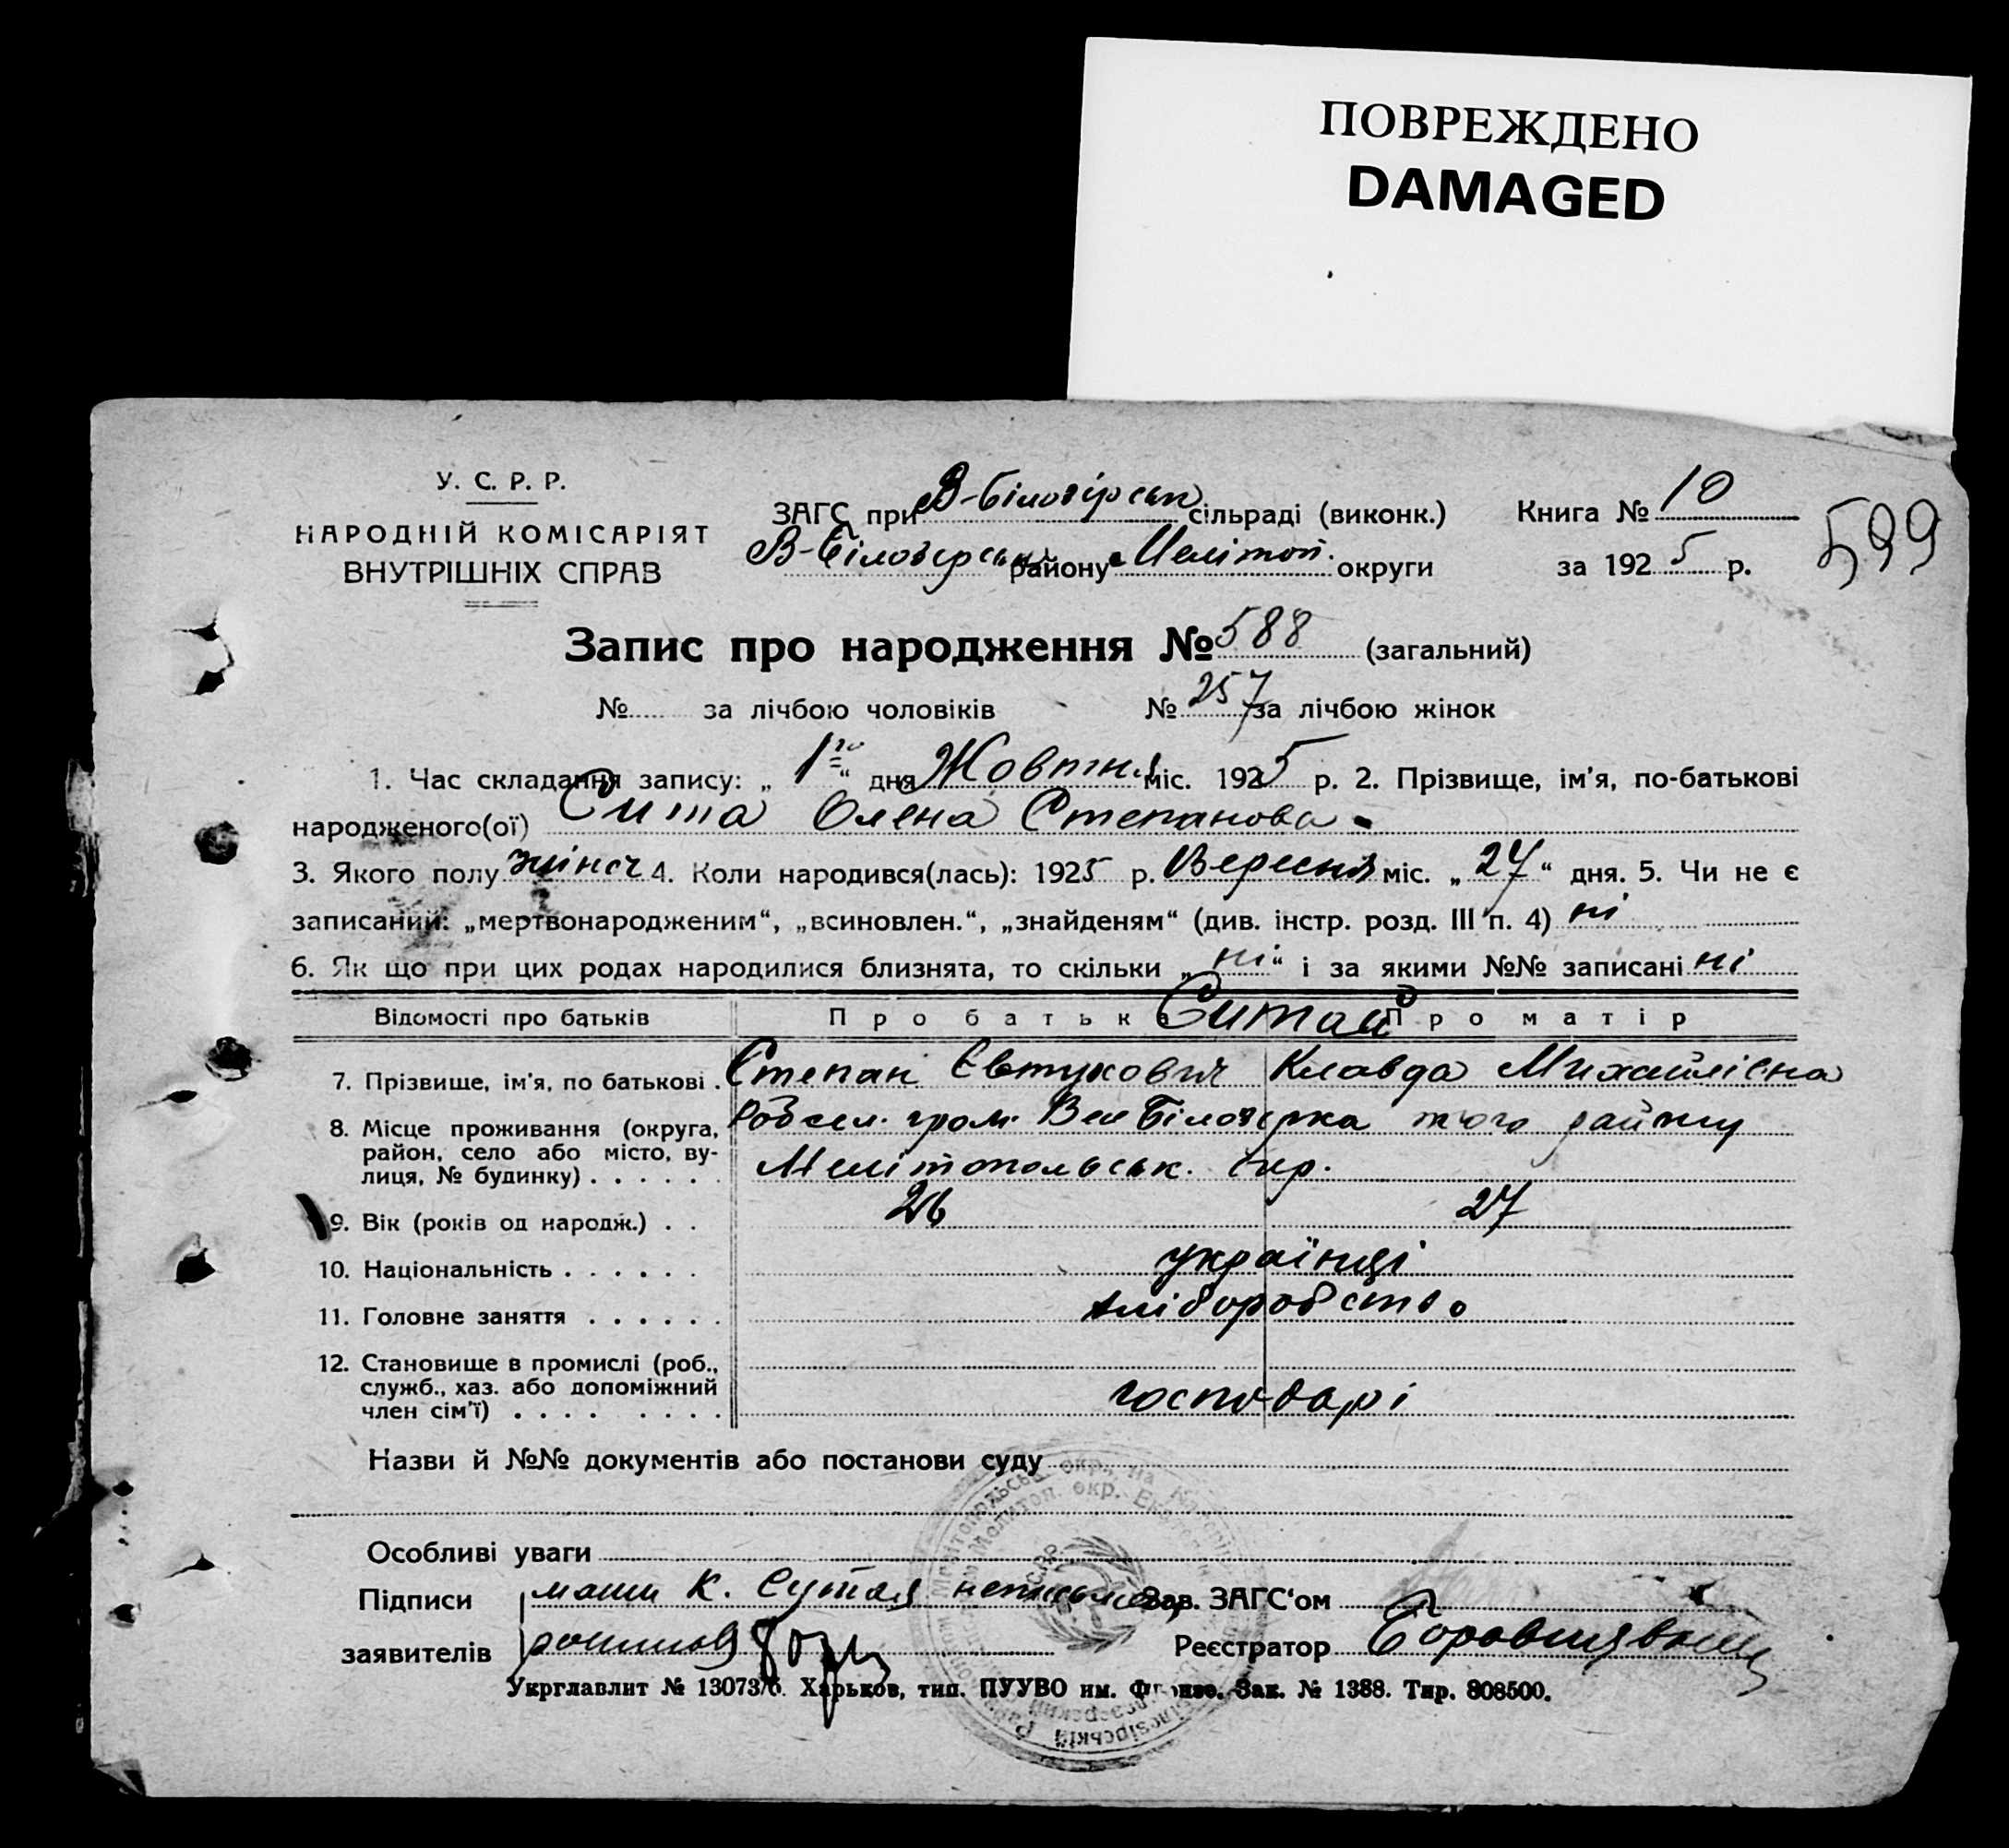 ПОВРЕЖДЕНО
DAMAGED
У. С. Р. Р.
НАРОДНІЙ КОМІСАРІЯТ
ВНУТРІШНІХ СПРАВ
ЗАГС при В-Білозірськ сільраді (виконк.)
В-Білозерськ району Мелітоп. округи
Книга № 10
за 1925 р.
599
Запис про народження № 588 (загальний)
№ за лічбою чоловіків № 257 за лічбою жінок
1. Час складання запису: „ 1го “ дня Жовтня міс. 1925 р. 2. Прізвище, ім'я, по-батькові
народженого(ої) Сита Олена Степанова
3. Якого полу жіноч 4. Коли народився(лась): 1925 р. Вересня міс. „ 27 “ дня. 5. Чи не є
записаний: „мертвонародженим“, „всиновлен.“, „знайденям“ (див. інстр. розд. III п. 4) ні
6. Як що при цих родах народилися близнята, то скільки „ ні “ і за якими №№ записані ні
Відомості про батьків Про батька Про матір
Ситай
7. Прізвище, ім'я, по батькові . Степан Євтухович Клавда Михайлівна
8. Місце проживання (округа, район, село або місто, вулиця, № будинку) . . . . . . гром. Вел Білозірка того району
Мелітопольськ. окр.
9. Вік (років од народж.) . . 26 27
10. Національність . . . . . . українці
11. Головне заняття . . . . . . хліборобство
12. Становище в промислі (роб.,
служб., хаз. або допоміжний
член сім'ї) . . . . . . . . господарі
Назви й №№ документів або постанови суду
Особливі уваги
Підписи мати К. Сутая неписьмен Зав. ЗАГС'ом
заявителів Реєстратор
Укрглавлит № 13073/б. Харьков, тип. ПУУВО им. Фрунзе. Зак. № 1388. Тир. 808500.